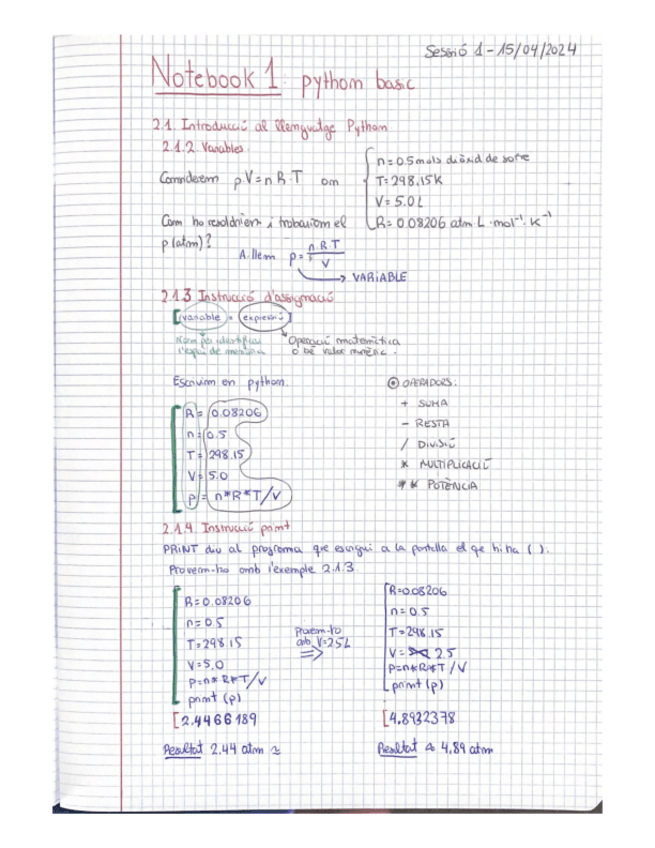 Sessió 1 - 15/04/2024
Notebook 1: python basic
2.1. Introducció al llenguatge Python
2.1.2. Variables.
Considerem pV = n R·T on
n = 0.5 mols diòxid de sofre
T = 298.15 K
V = 5.0 L
R = 0.08206 atm·L·mol⁻¹·K⁻¹
Com ho resoldríem i trobaríem el
p (atm)?
Aïllem p = n.R.T / V
→ VARIABLE
2.1.3 Instrucció d'assignació
[variable = expressió]
Nom per identificar
l'espai de memòria
Operació matemàtica
o bé valor numèric.
Escrivim en python.
R = 0.08206
n = 0.5
T = 298.15
V = 5.0
p = n*R*T/V
OPERADORS:
+ SUMA
- RESTA
/ DIVISIÓ
* MULTIPLICACIÓ
** POTÈNCIA
2.1.4. Instrucció print
PRINT diu al programa que escrigui a la pantalla el que hi ha ( ).
Provem-ho amb l'exemple 2.1.3
R = 0.08206
n = 0.5
T = 298.15
V = 5.0
P = n*R*T/V
print (p)
[2.4466189
Resultat 2,44 atm ≈
Provem-ho
amb V=2.5L
⇒
R = 0.08206
n = 0.5
T = 298.15
V = 2.5
P = n*R*T/V
print (p)
[4.8932378
Resultat ≈ 4,89 atm